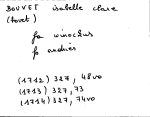 BOUVET isabelle clare
(bovet)
fa winochus
fo andriès
(1712) 327, 48vo
(1713) 327, 73
(1714) 327, 74vo